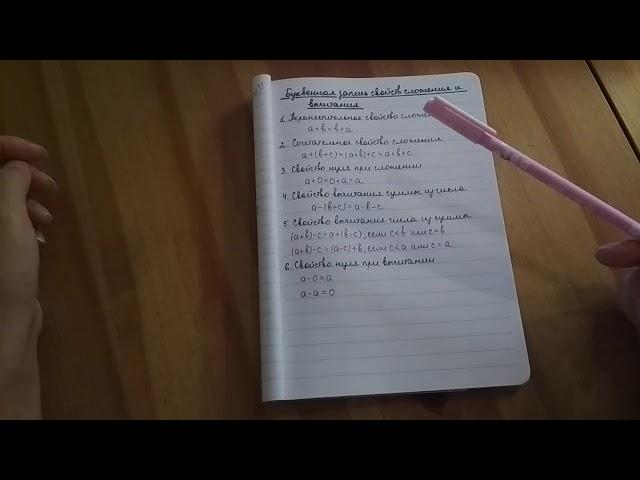 Буквенная запись свойств сложения и
вычитания
1. Переместительное свойство
a+b=b+a
2. Сочетательное свойство сложения
a+(b+c)=(a+b)+c=a+b+c
3. Свойство нуля при сложении
a+0=0+a=a
4. Свойство вычитания суммы из числа
a-(b+c)=a-b-c
5. Свойство вычитания числа из суммы
(a+b)-c=a+(b-c), если c<b или c=b
(a+b)-c=(a-c)+b, если c<a или c=a
6. Свойство нуля при вычитании
a-0=a
a-a=0